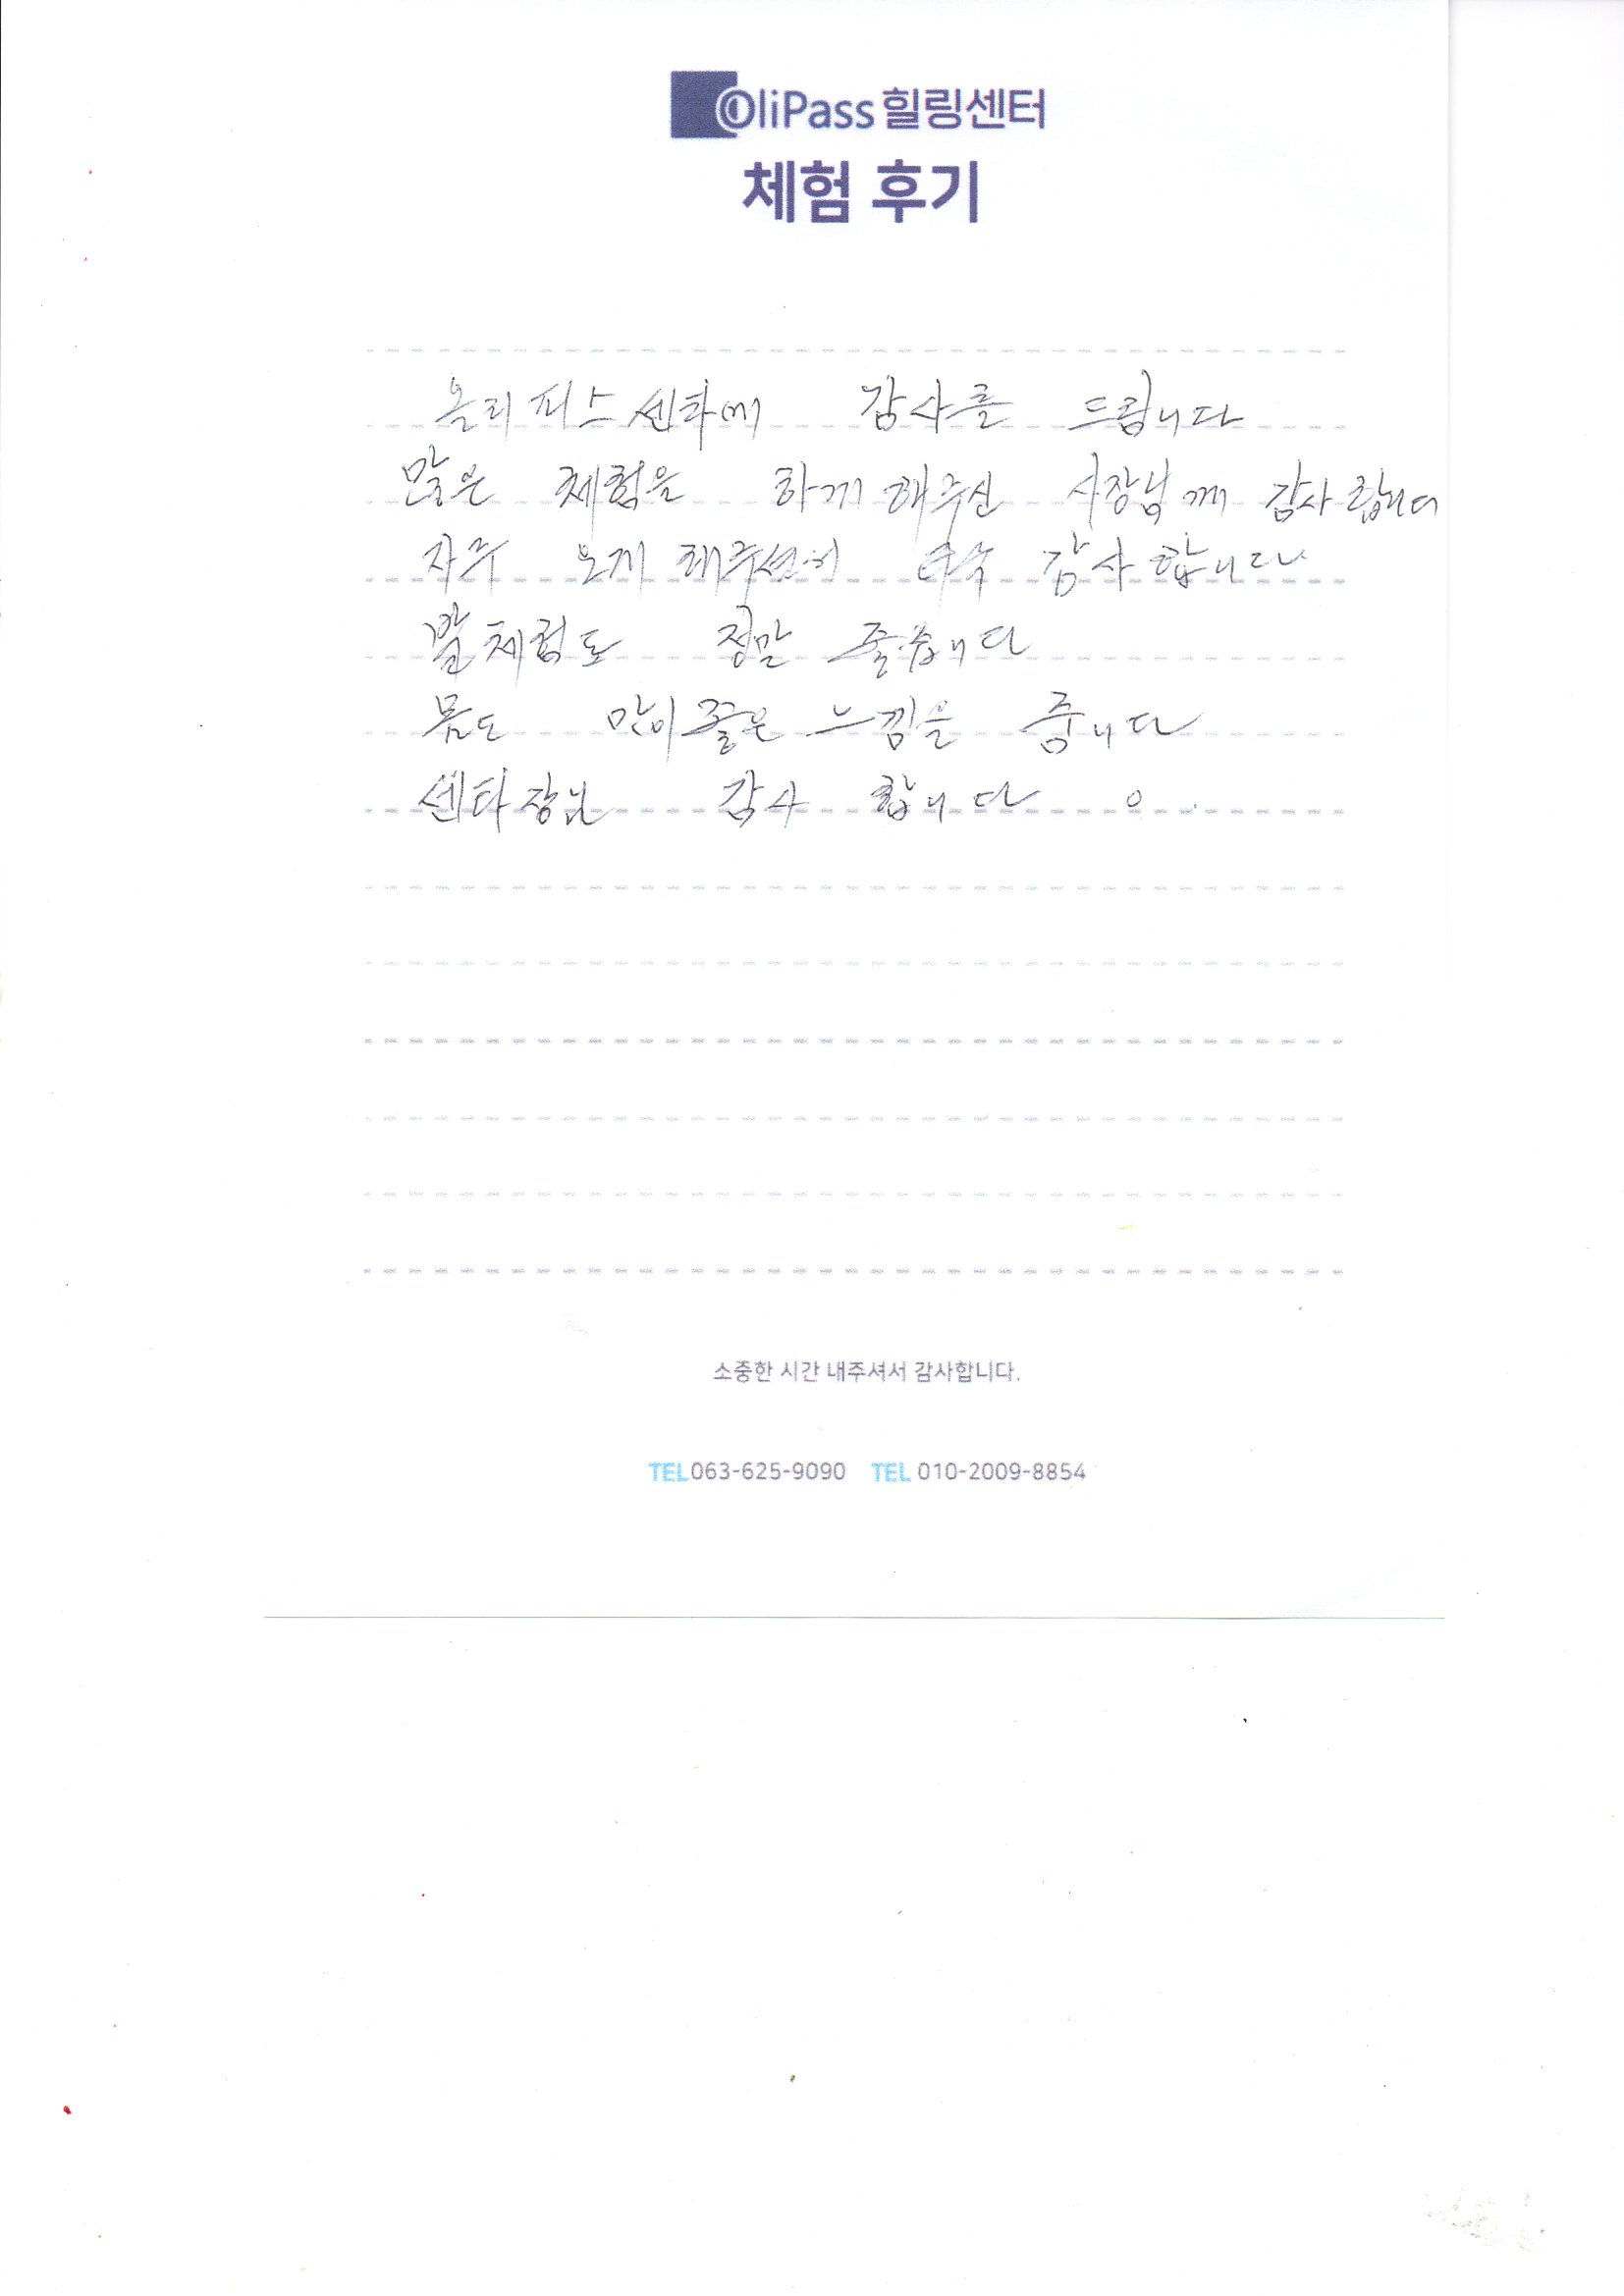 OliPass 힐링센터
체험 후기
올리퍼스 센타에 감사를 드립니다
많은 체험을 하게 해주신 사장님께 감사
자주 오게 해주셔서 감사합니다
발체험도 정말 좋습니다
몸도 많이 좋은 느낌을 줍니다
센타장님 감사 합니다
소중한 시간 내주셔서 감사합니다.
TEL063-625-9090 TEL 010-2009-8854